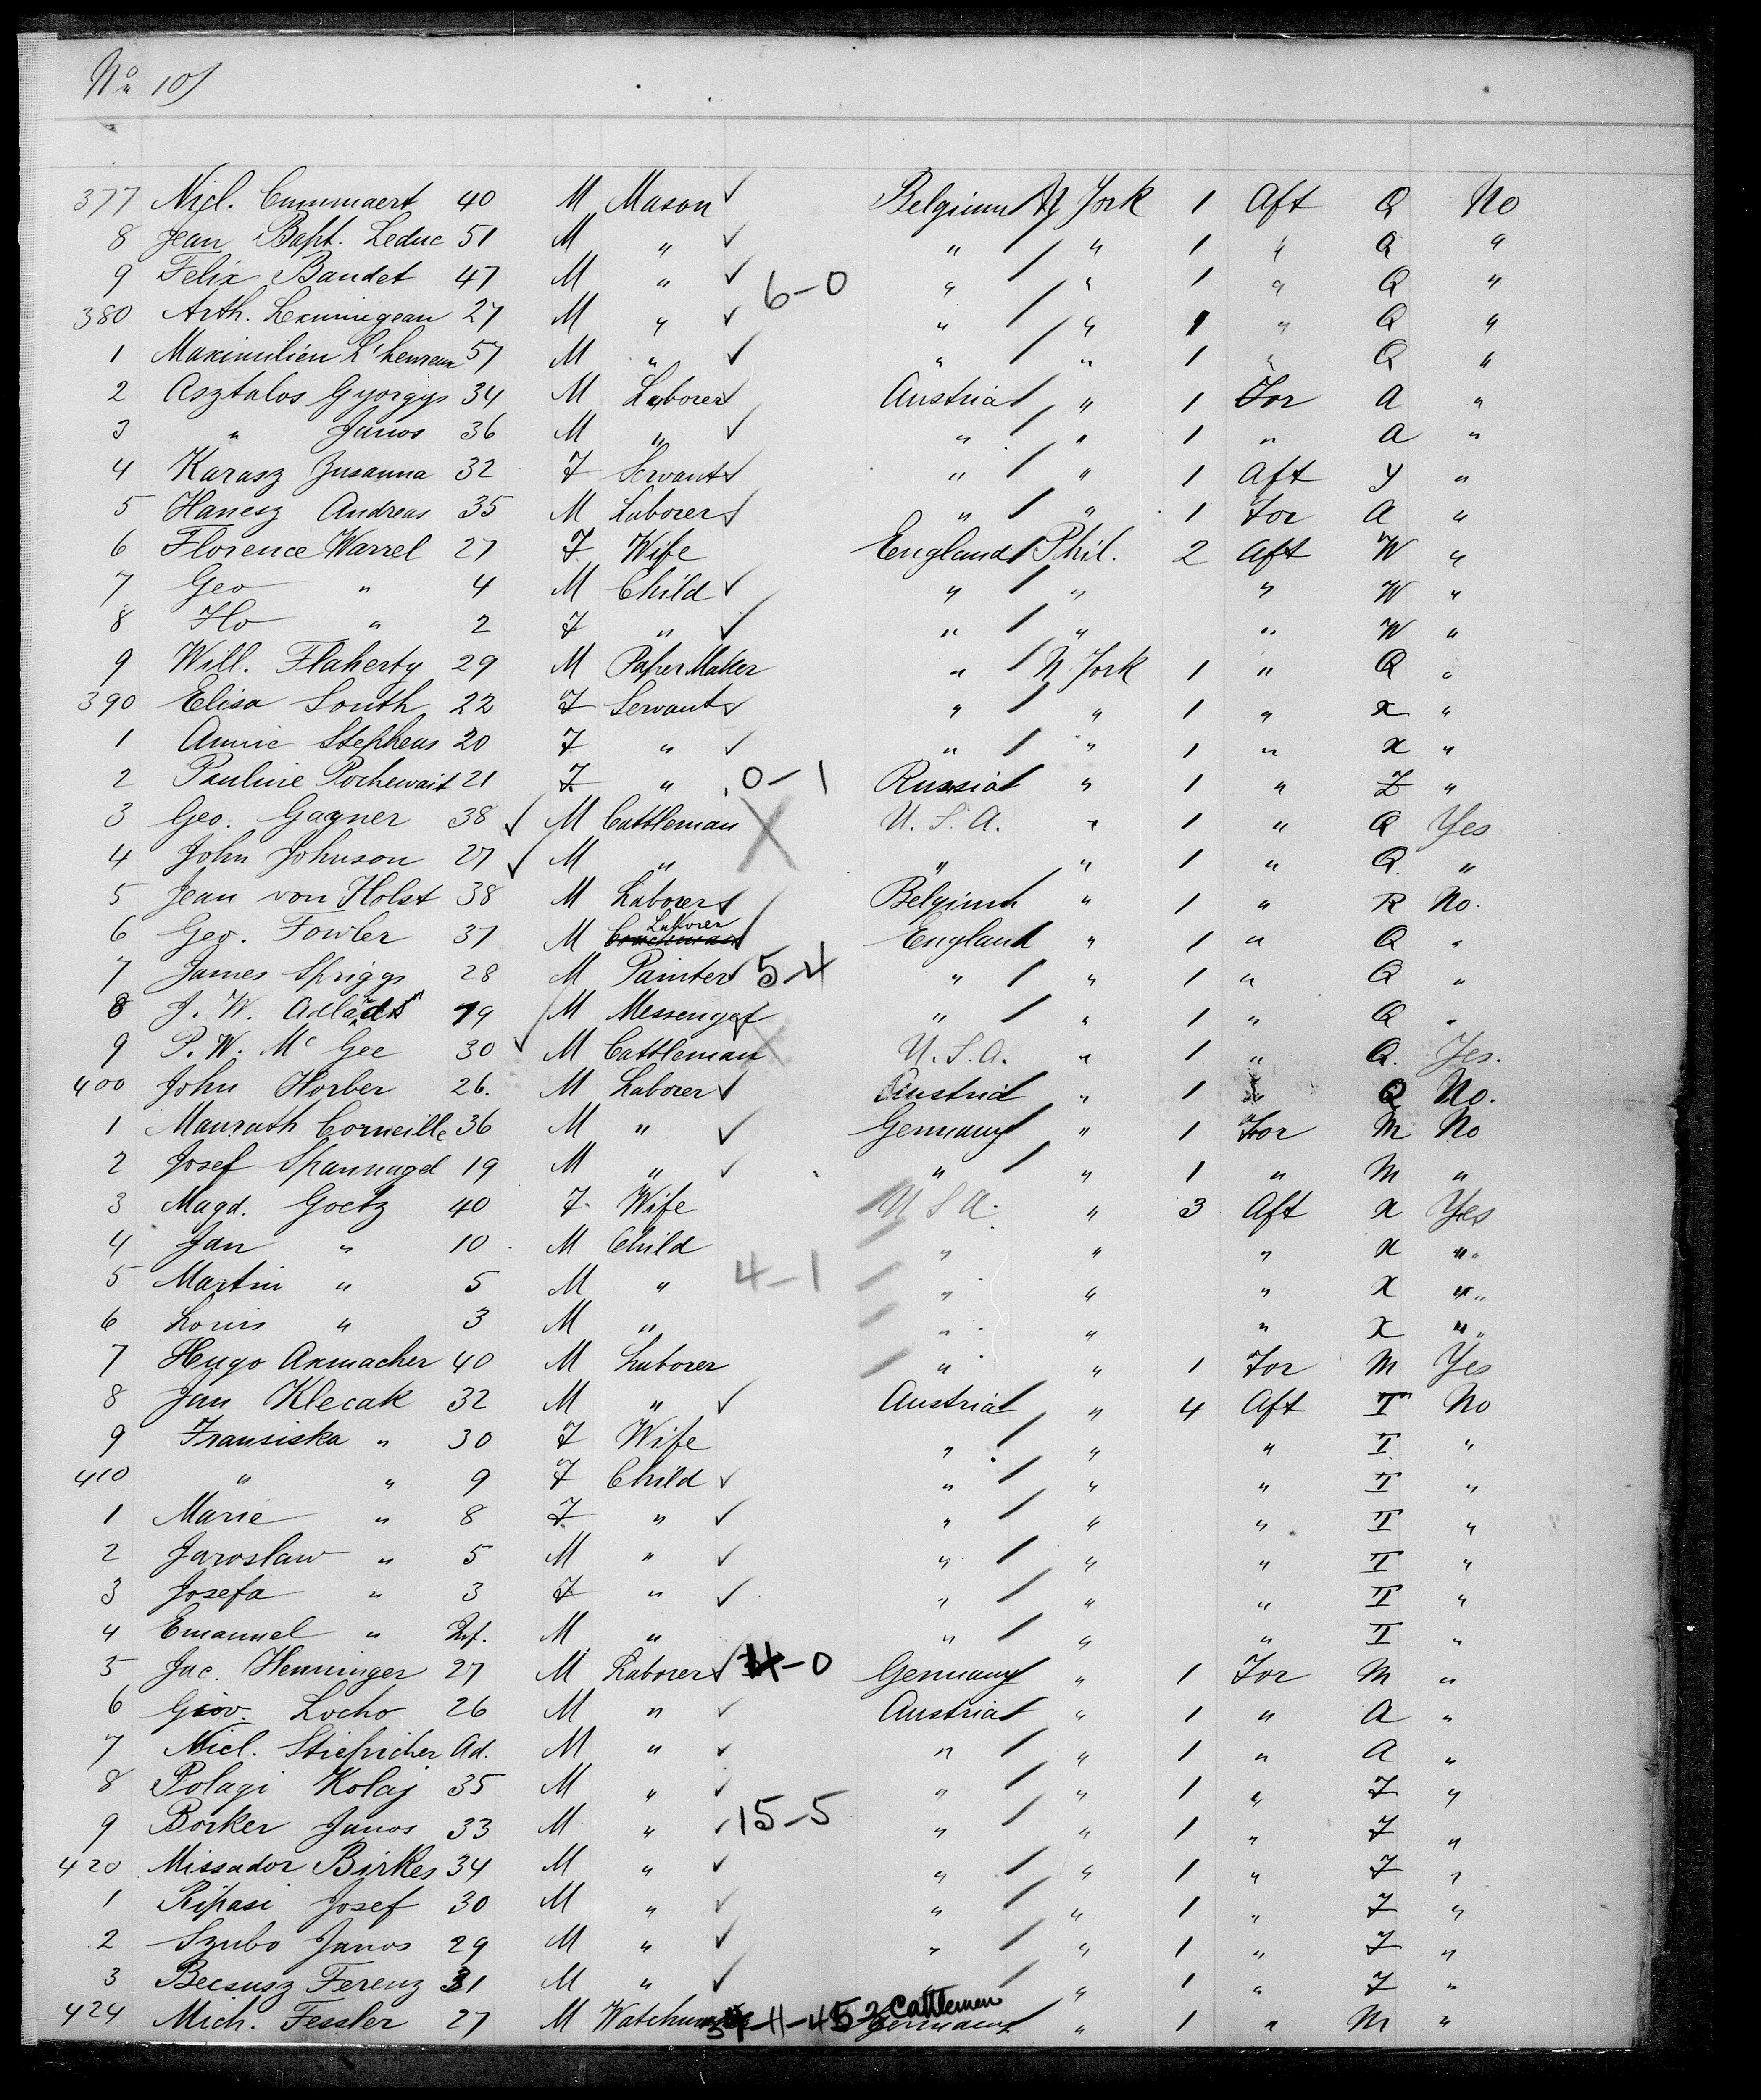 No 10)
377 Nicl. Cummaert 40 M Mason ✓ Belgium N York 1 Aft Q No
8 Jean Bapt. Leduc 51 M " ✓ " / " 1 " Q "
9 Felix Baudet 47 M " ✓ " / " 1 " Q "
6-0
380 Arth. 27 M " ✓ " / " 1 " Q "
1 Maximilien 57 M " ✓ " / " 1 " Q "
2 Asztalos Gyorgys 34 M Laborer Austria / " 1 For A "
3 " Janos 36 M " ✓ " / " 1 " A "
4 Karasz Zusanna 32 F Servant ✓ " / " 1 Aft Y "
5 Hanesz Andreas 35 M Laborer ✓ " / " 1 For A "
6 Florence Warrel 27 F Wife England / Phil. 2 Aft W "
7 Geo " 4 M Child ✓ " / " " W "
8 Flo " 2 F " ✓ " / " " W "
9 Will. Flaherty 29 M Paper Maker " / N York 1 " Q "
390 Elisa South 22 F Servant ✓ " / " 1 " X "
1 Annie Stephens 20 F " ✓ " / " 1 " X "
2 Pauline Pochewait 21 F " 0-1 Russia / " 1 " Z "
3 Geo. Gagner 38 ✓ M Cattleman X U.S.A. " 1 " Q Yes
4 John Johnson 27 ✓ M " " " 1 " Q "
5 Jean von Holst 38 M Laborer ✓ Belgium " 1 " R No.
6 Geo. Fowler 37 M Coachman Laborer ✓ England " 1 " Q "
7 James Spriggs 28 M Painter ✓ 5-4 " / " 1 " Q "
8 J. W. 19 M Messenger " / " 1 " Q "
9 P. W. Mc Gee 30 ✓ M Cattleman X U.S.A. " 1 " Q. Yes.
400 John Horber 26. M Laborer ✓ Austria " 1 " Q No.
1 Manrath Corneille 36 M " ✓ Germany " 1 For M No
2 Josef Spannagel 19 M " ✓ " / " 1 " M "
3 Magd. Goetz 40 F Wife U S A. " 3 Aft X Yes
4 Jan " 10 M Child " " " X "
5 Martin " 5 M " 4-1 " " " X "
6 Louis " 3 M " " " " X "
7 Hugo Axmacher 40 M Laborer " " 1 For M Yes
8 Jan Klecak 32 M " ✓ Austria / " 4 Aft T No
9 Fransiska " 30 F Wife " / " " T "
410 " " 9 F Child ✓ " / " " T "
1 Marie " 8 F " ✓ " / " " T "
2 Jaroslaw " 5 M " ✓ " / " " T "
3 Josefa " 3 F " ✓ " / " " T "
4 Emanuel " Inf. M " " / " " T "
5 Jac. Henninger 27 M Laborer ✓ 4-0 Germany " 1 For M "
6 Giov. Locho 26 M " ✓ Austria / " 1 " A "
7 Nicl. Stiepicher Ad. M " ✓ " / " 1 " A "
8 Polagi Kolaj 35 M " ✓ " / " 1 " F "
9 Borker Janos 33 M " ✓ 15-5 " / " 1 " F "
420 Missador Birkes 34 M " ✓ " / " 1 " F "
1 Ripasi Josef 30 M " ✓ " / " 1 " F "
2 Szubo Janos 29 M " ✓ " / " 1 " F "
3 Becsusz Ferenz 31 M " ✓ " / " 1 " F "
424 Mich. Fessler 27 M 11-45-3 Cattlemen Germany " 1 " M "